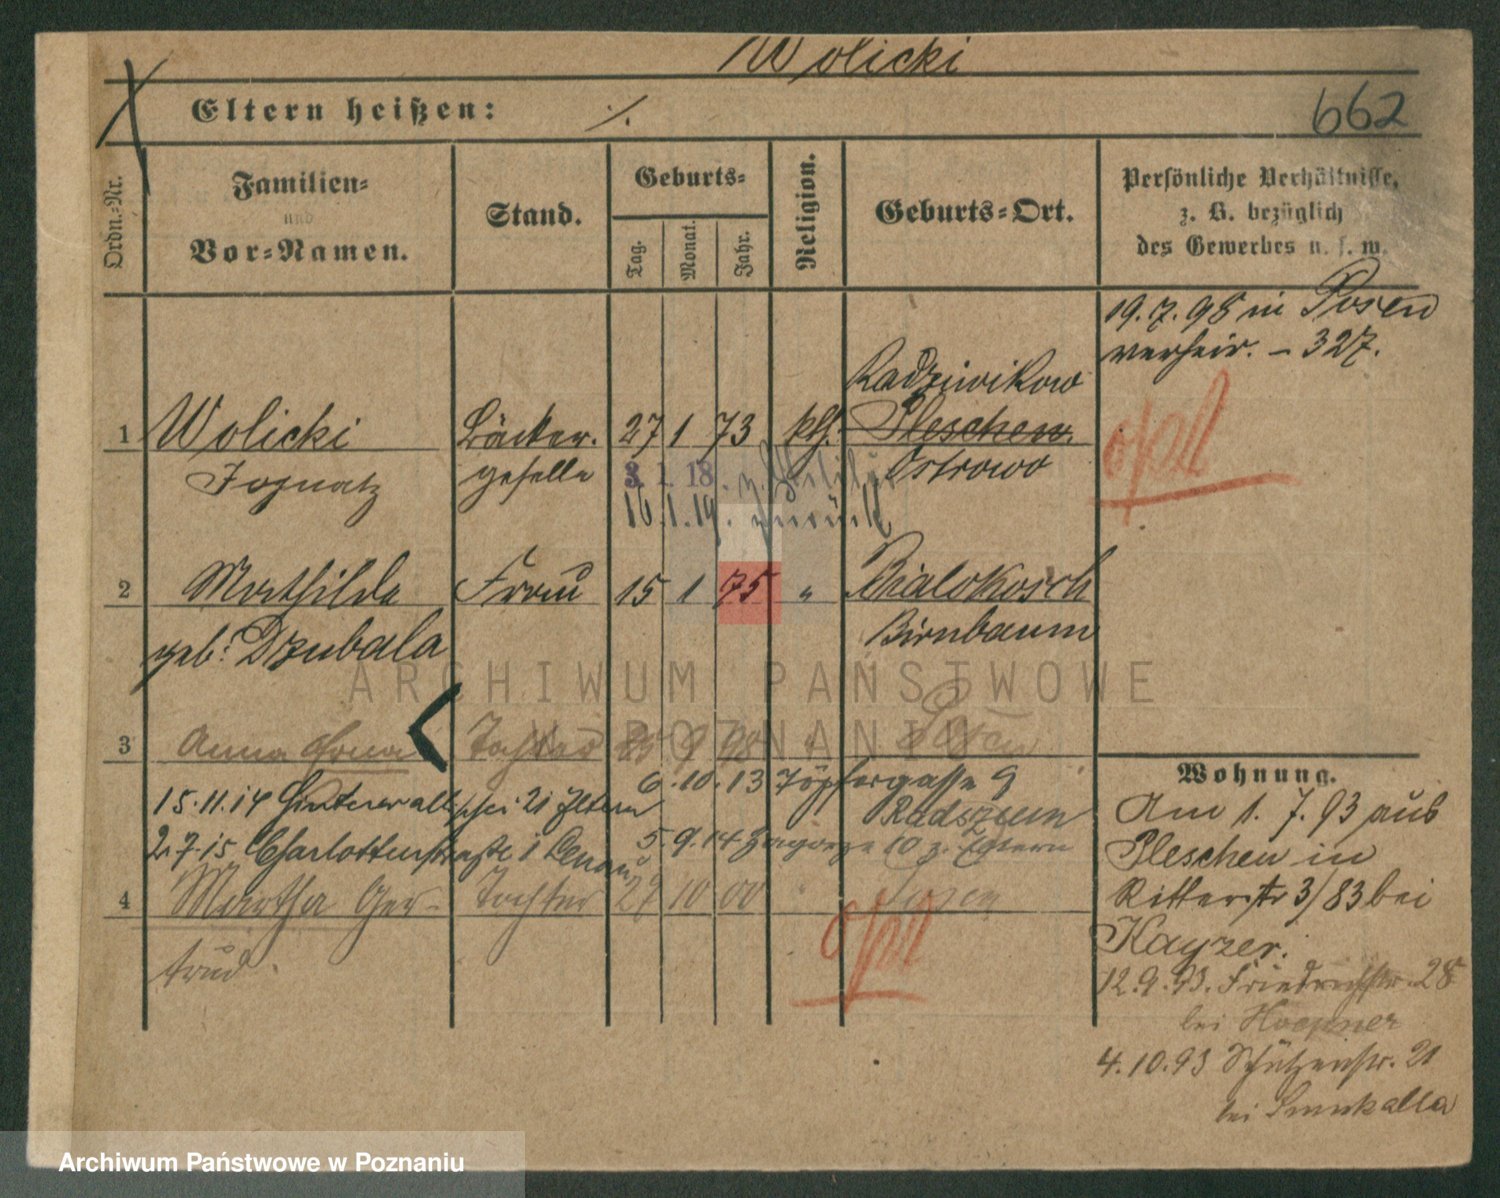 Wolicki
Eltern heißen: ./.
662
Ordn.-Nr.
Familien-
und
Vor-Namen.
Stand.
Geburts-
Tag.
Monat.
Jahr.
Religion.
Geburts-Ort.
Persönliche Verhältnisse,
z. B. bezüglich
des Gewerbes u. s. w.
19. 7. 98 in Posen
verheir. – 327.
Radziwikow
1 Wolicki Bäcker- 27 1 73 kth. Pleschen
Ignatz geselle Ostrowo
3. 1. 18.
16. 1. 19. zurück
2 Mathilde Frau 15 1 75 " Bialokosch
geb. Dzubala Birnbaum
3 Anna Tochter 25 9 98 " Posen
6. 10. 13 Töpfergasse 9
15. 11. 14 Hinterwallischei 21 Eltern
5. 9. 14 Zagorze 10 z. Eltern
2. 7. 15 Charlottenstraße 1
4 Martha Ger- Tochter 27 10 00 " Posen
trud
Wohnung.
Am 1. 7. 93 aus
Pleschen in
Ritterstr 3/83 bei
Kayzer.
12. 9. 93. Friedrichstr. 28
bei Hoepner
4. 10. 93 Schützenstr. 21
bei Smukalla
ARCHIWUM PAŃSTWOWE
W POZNANIU
Archiwum Państwowe w Poznaniu